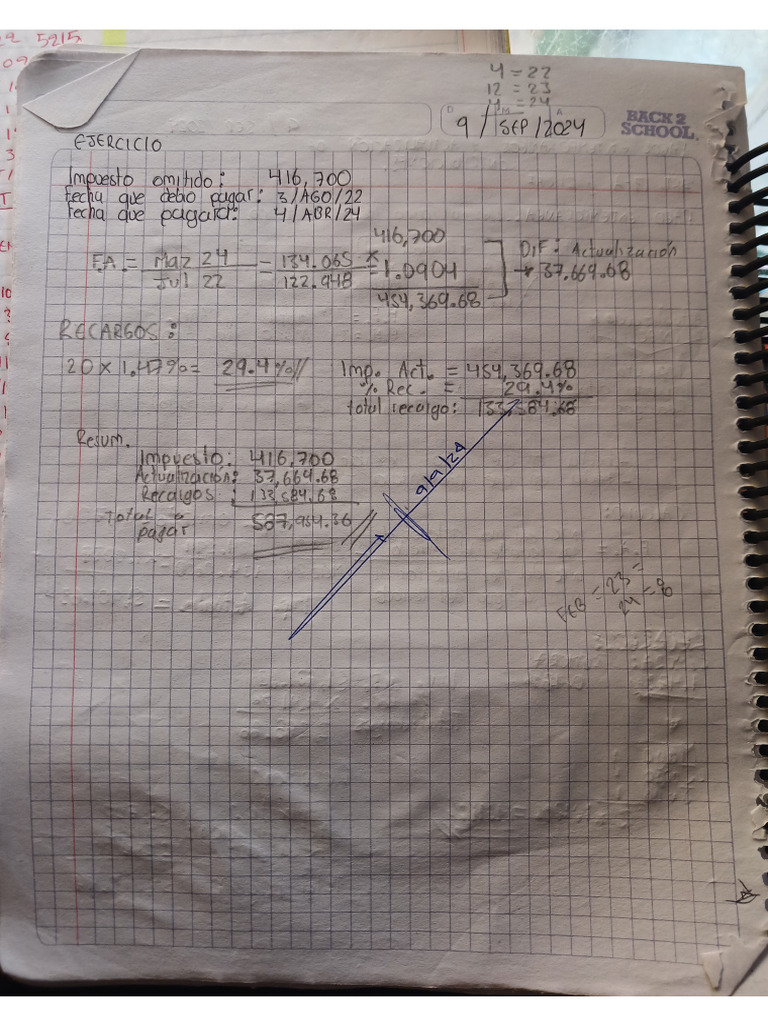 5215
4 = 22
12 = 23
4 = 24
D M A
9 / SEP / 2024
BACK 2 SCHOOL
EJERCICIO
Impuesto omitido: 416,700
Fecha que debio pagar: 3/AGO/22
Fecha que pagara: 4/ABR/24
416,700
F.A. = Maz 24 = 134.065 x
Jul 22 122.948 = 1.0904
454,369.68
DIF: Actualización
→ 37,669.68
RECARGOS:
20 x 1.47% = 29.4%//
Imp. Act. = 454,369.68
% Rec. = 29.4%
total recargo: 133,584.68
Resum.
Impuesto: 416,700
Actualización: 37,669.68
Recargos: 133,584.68
Total a pagar 587,954.36
9/9/24
FEB = 23 =
24 = 8